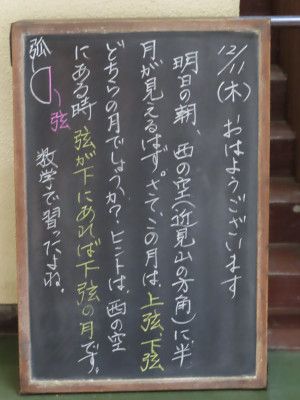 12/11(木) おはようございます
明日の朝、西の空(近見山の方角)に、半
月が見えるはず。さて、この月は、上弦、下弦
どちらの月でしょうか?ヒントは、西の空
にある時 弦が下にあれば下弦の月です。
弧
弦
数学で習ったよね。